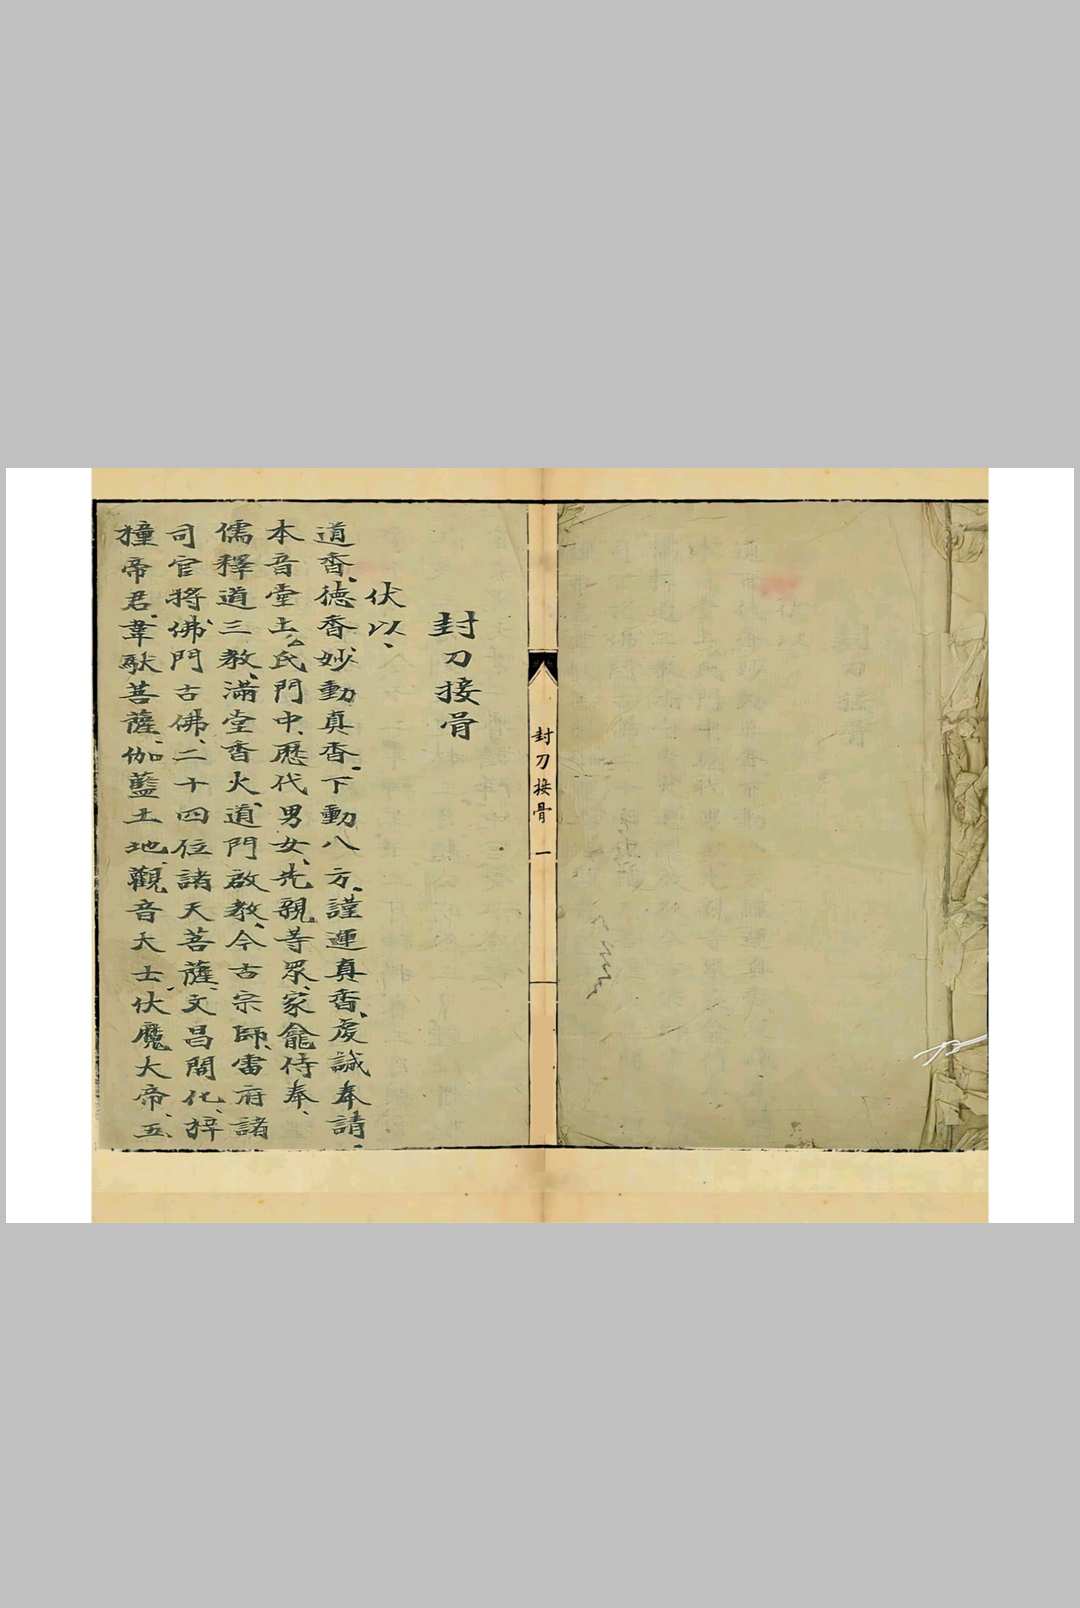 封刀接骨
伏以、
道香、德香、妙動真香、下動八方、謹運真香、虔誠奉請、
本音堂上△氏門中、歷代男女、先親等眾、家龕侍奉、
儒釋道三教、滿堂香火、道門啟教、今古宗師、雷府諸
司官將、佛門古佛、二十四位諸天菩薩、文昌開化、梓
橦帝君、韋馱菩薩、伽藍土地、觀音大士、伏魔大帝、五
封刀接骨
一